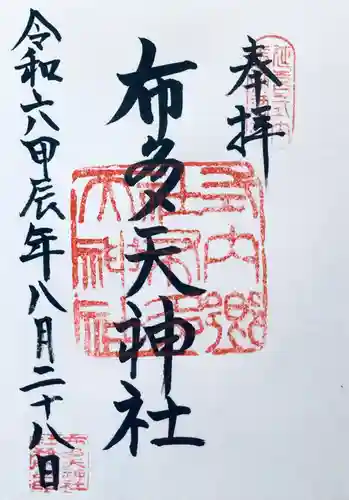 奉拝
布多天神社
令和六甲辰年八月二十八日